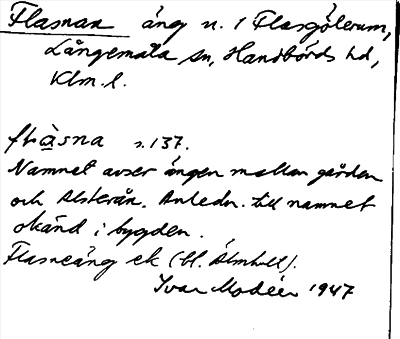 Flasnan äng n. / Flasgölerum,
Långemåla sn, Handbörds hd,
Klm. l.
flàsna s. 137.
Namnet avser ängen mellan gården
och Alsterån. Anledn. till namnet
okänd i bygden.
Flasneäng ek (bl. Älmhult).
Ivar Modéer 1947